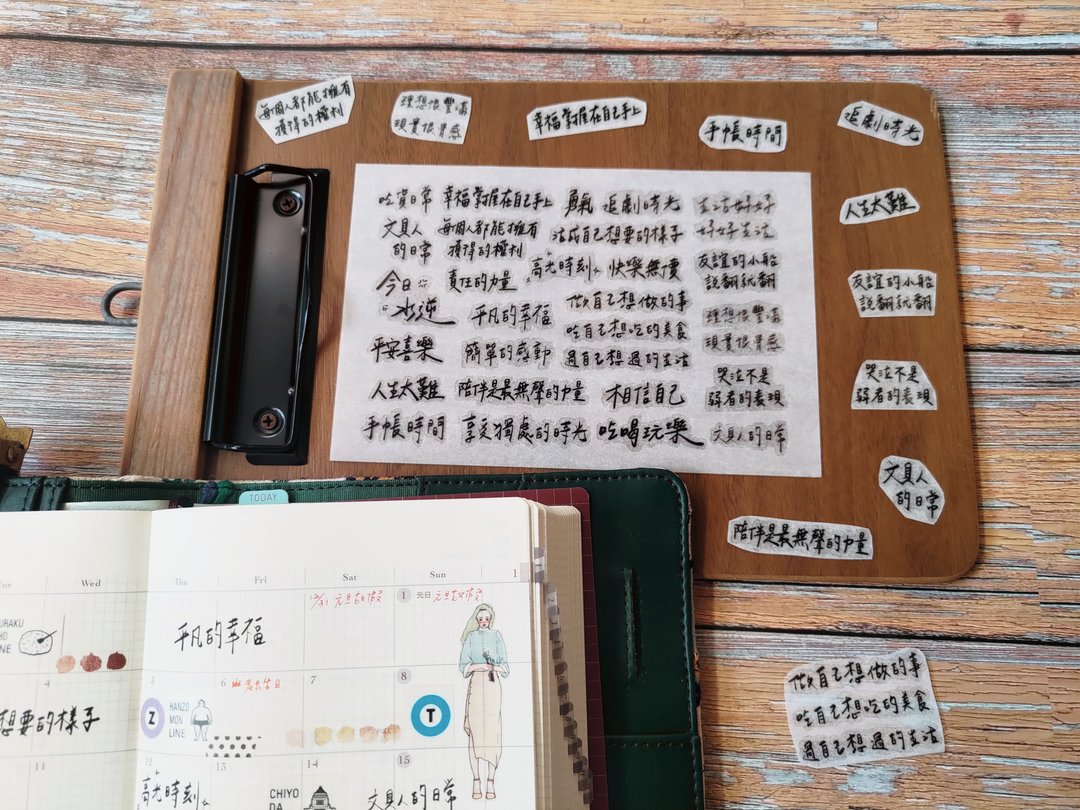 每個人都能擁有
獲得的權利
理想很豐滿
現實很骨感
幸福掌握在自己手上
手帳時間
追劇時光
人生太難
友誼的小船
說翻就翻
哭泣不是
弱者的表現
文具人
的日常
陪伴是最無聲的力量
吃貨日常
幸福掌握在自己手上
勇氣
追劇時光
生活好好
好好生活
文具人
的日常
每個人都能擁有
獲得的權利
活成自己想要的樣子
高光時刻
快樂無憂
友誼的小船
說翻就翻
今日
責任的力量
水逆
平凡的幸福
做自己想做的事
吃自己想吃的美食
過自己想過的生活
理想很豐滿
現實很骨感
平安喜樂
簡單的感動
哭泣不是
弱者的表現
人生太難
陪伴是最無聲的力量
相信自己
手帳時間
享受獨處的時光
吃喝玩樂
文具人的日常
做自己想做的事
吃自己想吃的美食
過自己想過的生活
TODAY
Wed
Thu
Fri
Sat
Sun
12/31 元旦放假
1 元日 元旦放假
平凡的幸福
4
5
6
7
8
想要的樣子
Z
HANZO
MON
LINE
T
11
12
13
14
15
高光時刻
CHIYO
DA
文具人的日常